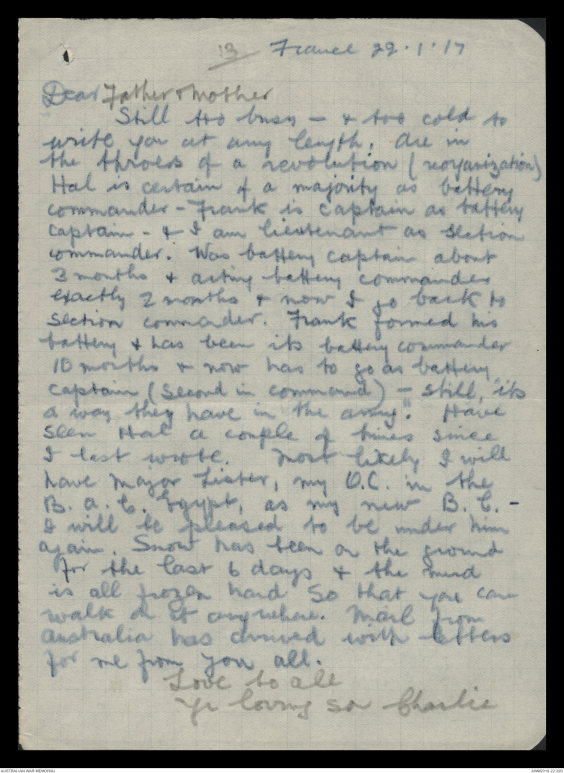 13 France 29.1.17
Dear Father & Mother
Still too busy - & too cold to
write you at any length. Are in
the throes of a revolution (reorganization)
Hal is certain of a majority as battery
commander - Frank is captain as battery
captain - & I am lieutenant as section
commander. Was battery captain about
3 months & acting battery commander
exactly 2 months & now I go back to
section commander. Frank formed his
battery & has been its battery commander
10 months & now has to go as battery
captain (second in command) - still, "its
a way they have in the army." Have
seen Hal a couple of times since
I last wrote. Most likely I will
have Major Lister, my O.C. in the
B.A.C. Egypt, as my new B.C. -
I will be pleased to be under him
again. Snow has been on the ground
for the last 6 days & the mud
is all frozen hard so that you can
walk on it anywhere. Mail from
Australia has arrived with letters
for me from you all.
Love to all
Yr loving son Charlie
AUSTRALIAN WAR MEMORIAL